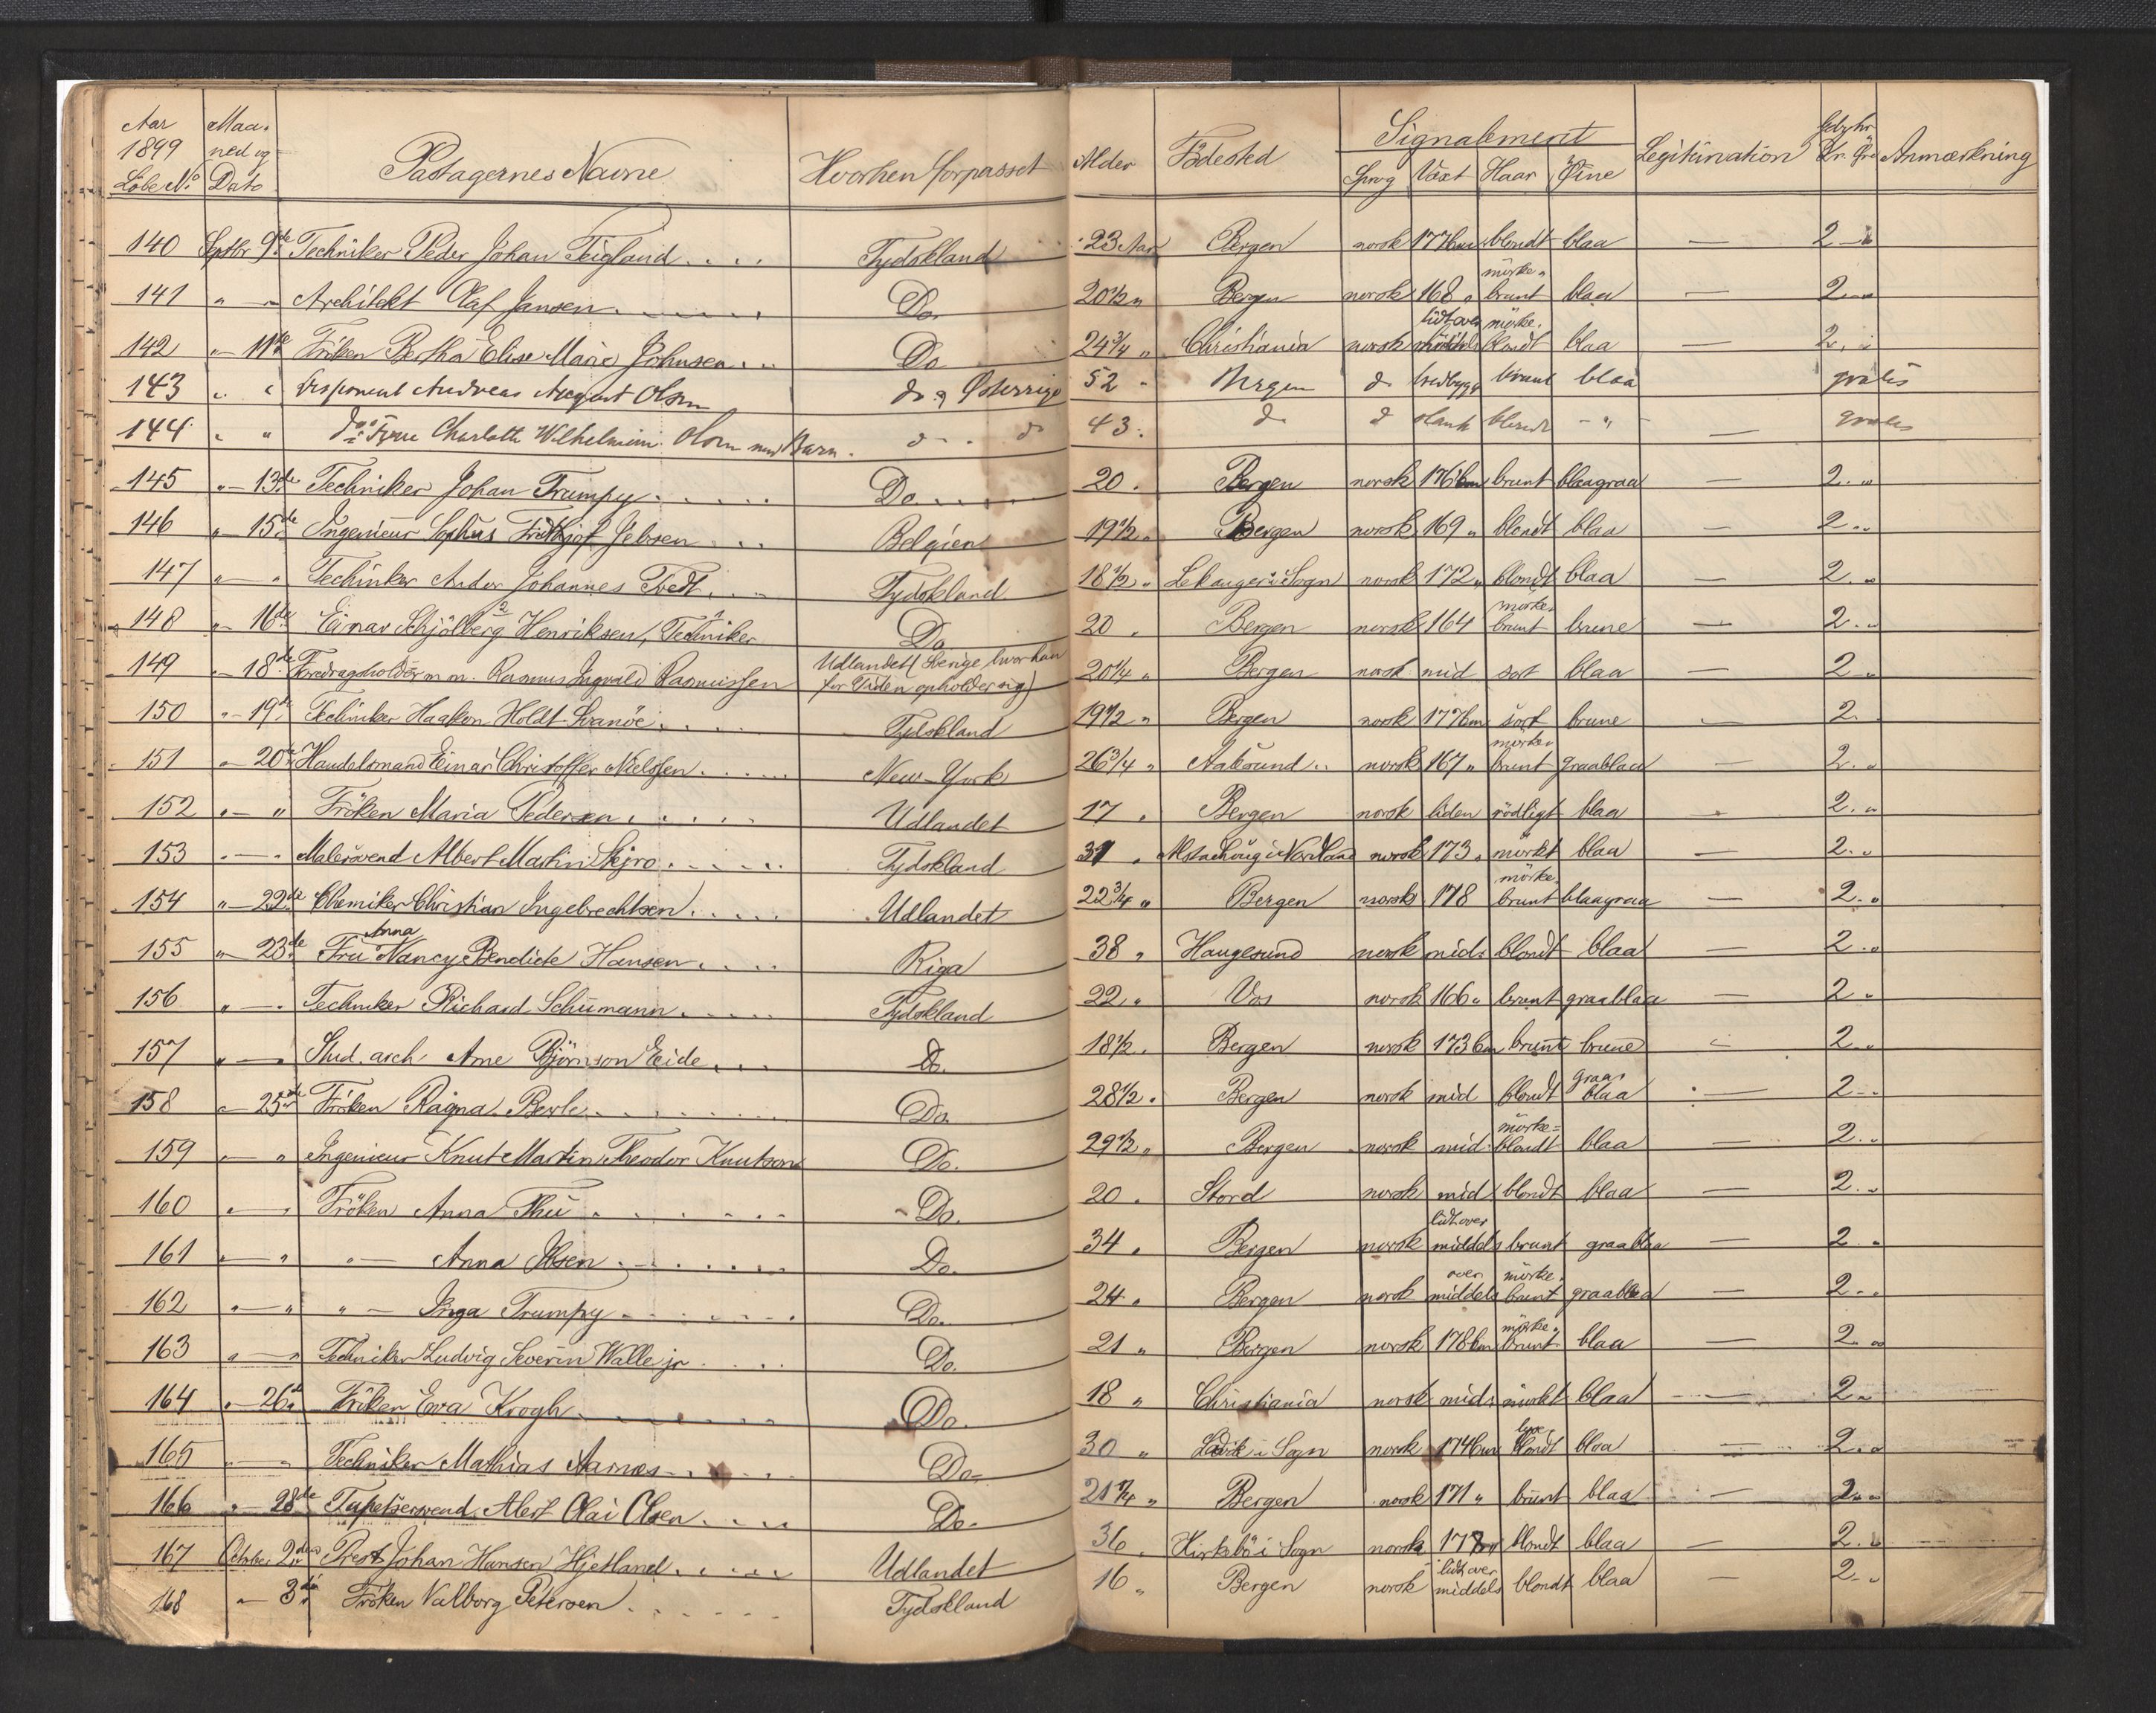 Aar 1899 Löbe No Maaned og Dato Passagernes Navne Hvorhen forpasset Alder Födested Signalement Legitimation Gebyhr Anmærkning
Sprog Væxt Haar Öine Kr. Öre
140 Septbr 9de Techniker Peder Johan Teigland Tydskland 23 Aar Bergen norsk 177 cm blondt blaa — 2 "
141 " — " Architekt Olaf Jansen Do. 20 1/2 " Bergen norsk 168 " mörke- brunt blaa — 2 "
142 " — 11te Fröken Bertha Elise Marie Johnsen Do 24 3/4 " Christiania norsk lidt over middels mörke- blondt blaa — 2 "
143 " " Disponent Andreas August Olsen do og Österrige 52 " Bergen do bredbygg brunt blaa gratis
144 " " do's Frue Charlotte Wilhelmine Olsen med Barn. do do 43. do do slank blondt — " — gratis
145 " — 13de Techniker Johan Trumpy Do 20. Bergen norsk 176 cm brunt blaagraa — 2 "
146 " — 15de Ingenieur Sophus Fridthjof Jebsen Belgien 19 1/2 " Bergen norsk 169 " blondt blaa — 2 "
147 " — " Techniker Andor Johannes Tvedt Tydskland 18 1/2 " Lekanger i Sogn norsk 172 " blondt blaa — 2 "
148 " — 16de Einar Schjölberg Henriksen, Techniker Do 20. Bergen norsk 164 mörke- brunt brune — 2 "
149 " — 18de Foredragsholder m. m. Rasmus Ingvald Rasmussen Udlandet (Sverige hvor han for Tiden opholder sig) 20 1/4 " Bergen norsk mid sort blaa — 2 "
150 " — 19de Techniker Haakon Holdt Svanöe Tydskland 19 1/2 " Bergen norsk 177 cm sort brune — 2
151 " — 20de Handelsmand Einar Christoffer Nielsen New-York 26 3/4 " Aalesund norsk 167 " mörke- brunt graablaa — 2 "
152 " — " Fröken Maria Pedersen Udlandet 17 " Bergen norsk liden rödligt blaa — 2 "
153 " — " Malersvend Albert Martin Skjro Tydskland 31 " Alstadhaug i Nordland norsk 173 " mörkt blaa — 2 "
154 " — 22de Chemiker Christian Ingebrechtsen Udlandet 22 3/4 " Bergen norsk 178 mörke- brunt blaagraa — 2 "
155 " — 23de Fru Anna Nancy Bendicte Hansen Riga 38 " Haugesund norsk mid. blondt blaa — 2 "
156 " — " Techniker Richard Schumann Tydskland 22 " Vos norsk 166 " brunt graablaa — 2 "
157 " — " Stud. arch. Arne Björnson Eide Do. 18 1/2 " Bergen norsk 173 cm brunt brune — 2 "
158 " — 25de Fröken Ragna Berle Do. 28 1/2 " Bergen norsk mid blondt graa- blaa — 2 "
159 " — " Ingenieur Knut Martin Theodor Knutson Do. 29 1/2 " Bergen norsk mid. mörke- blondt blaa — 2 "
160 " — " Fröken Anna Thu Do. 20 " Stord norsk mid blondt blaa — 2 "
161 " — " " — Anna Ibsen Do. 34 " Bergen norsk lidt over middels brunt graablaa — 2 "
162 " — " " — Inga Trumpy Do. 24 " Bergen norsk over middels mörke- brunt graablaa — 2 "
163 " — " Techniker Ludvig Severin Walle jr Do. 21 " Bergen norsk 178 cm mörke- brunt blaa — 2 "
164 " — 26de Fröken Ewa Krogh Do. 18 " Christiania norsk mid. mörkt blaa — 2 "
165 " — " Techniker Mathias Aarnes Do. 30 " Ladvik i Sogn norsk 174 cm lyse- blondt blaa — 2 "
166 " — 28de Tapetsersvend Alert Olai Olsen Do. Bergen norsk 171 " brunt blaa — 2 "
167 October 2den Prest Johan Hansen Hjetland Udlandet 36 " Kirkebö i Sogn norsk blondt blaa — 2 "
168 " — 3die Fröken Valborg Petersen Tydskland 16 " Bergen norsk lidt over middels blondt blaa — 2 "